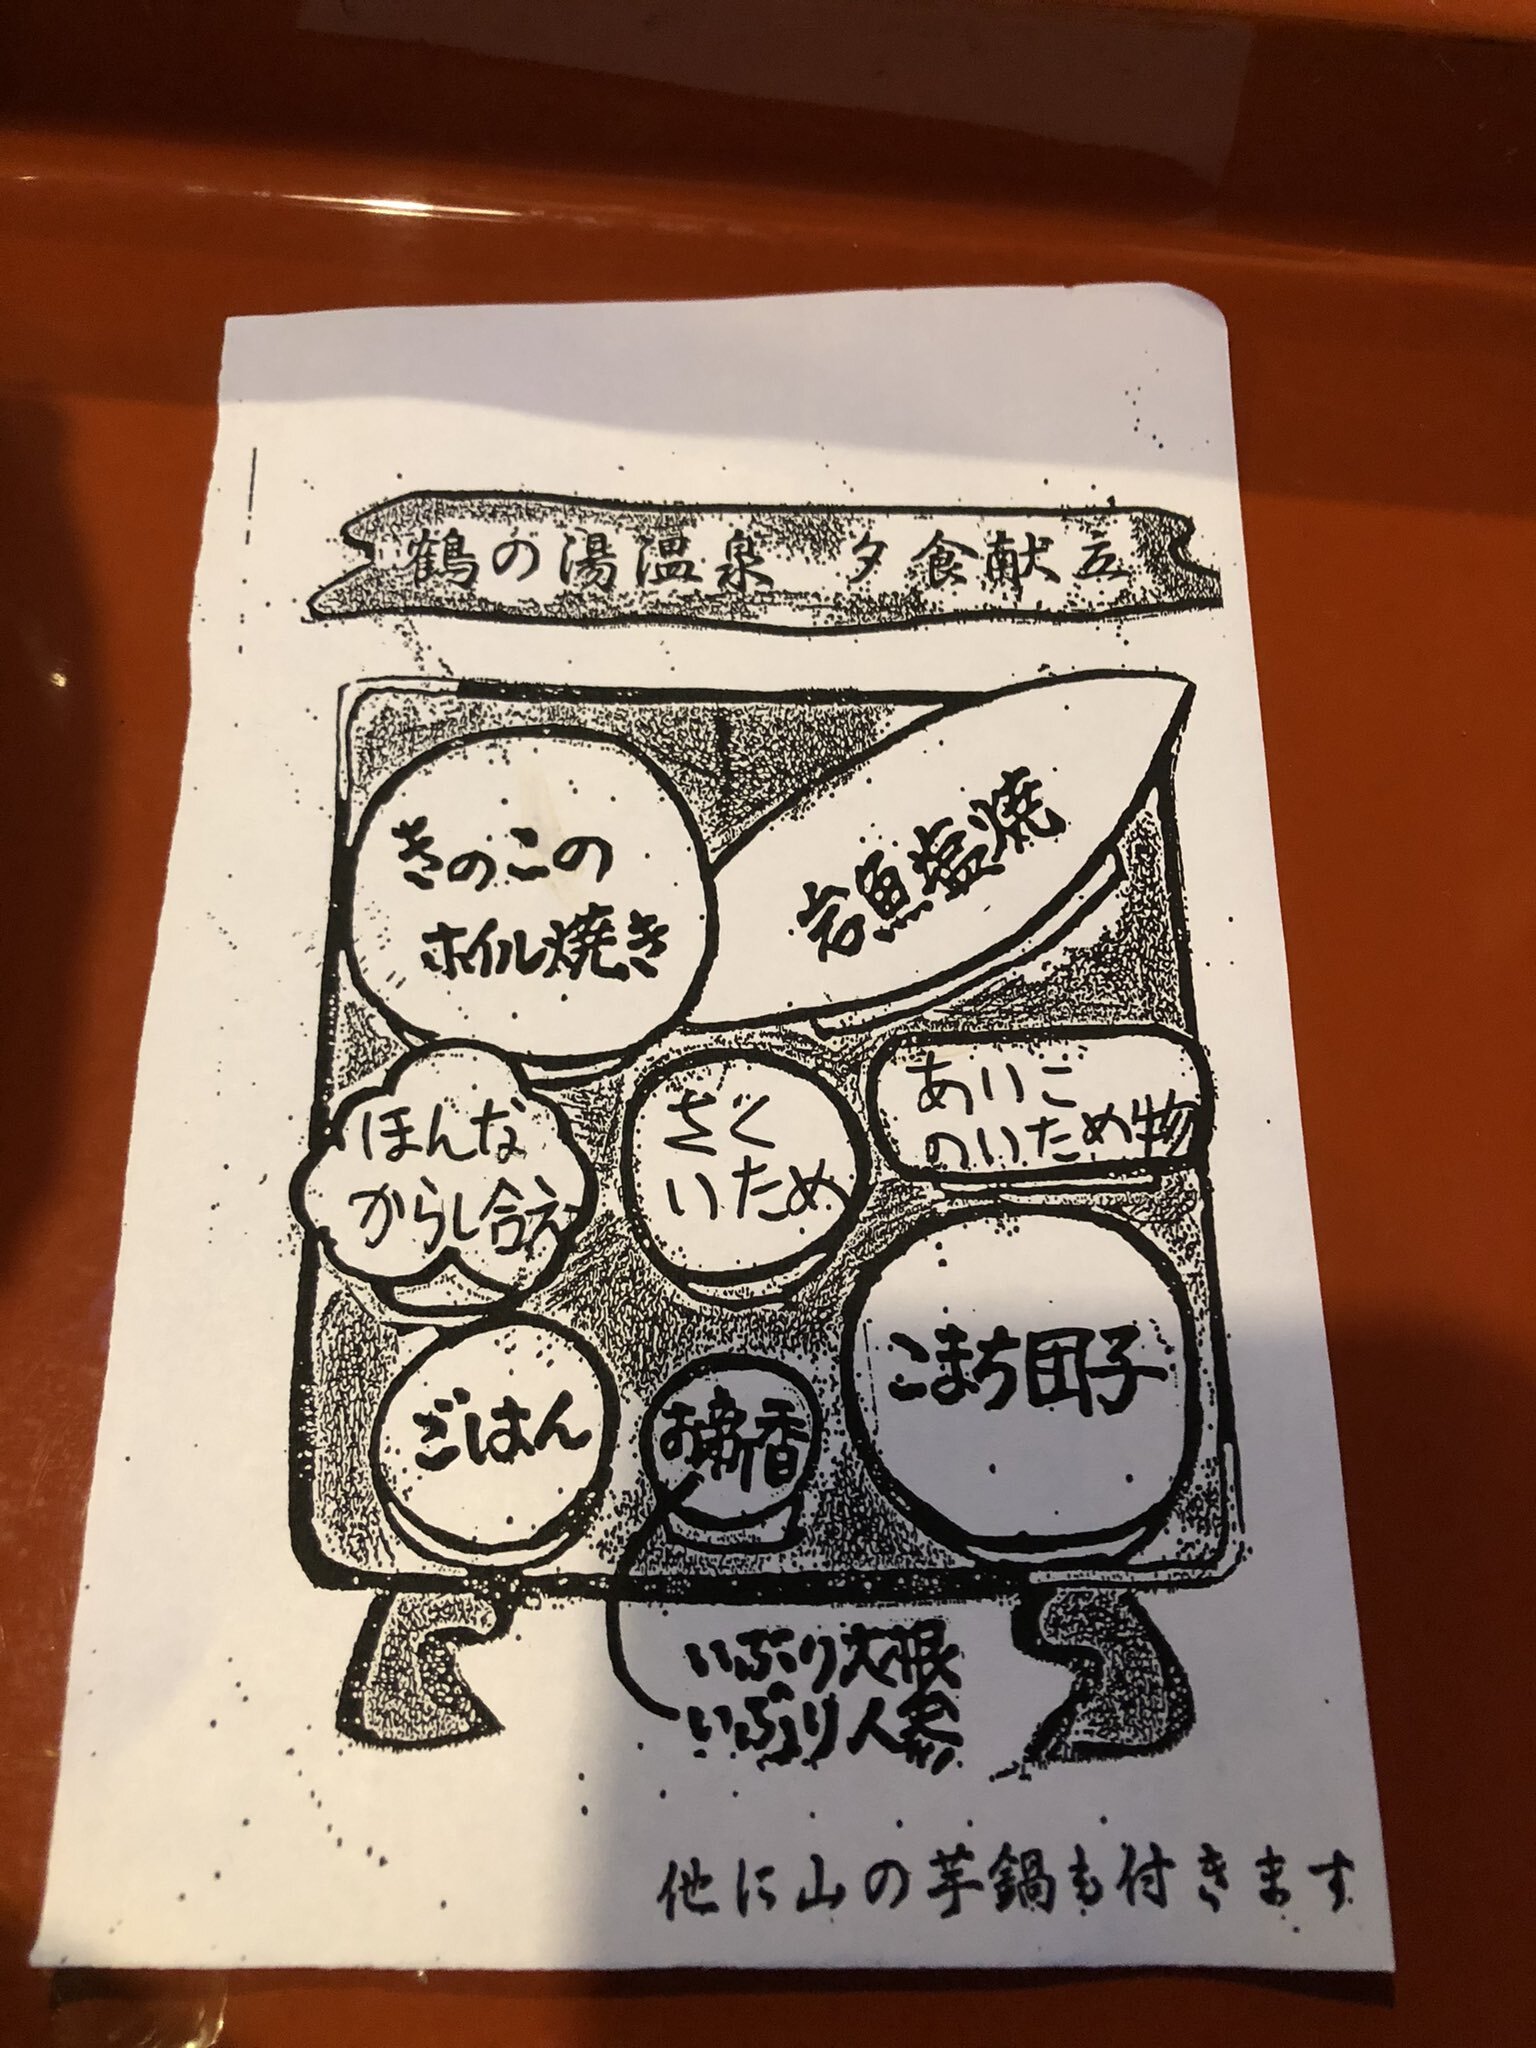 鶴の湯温泉 夕食献立
きのこの
ホイル焼き
岩魚塩焼
ほんな
からし合え
ざく
いため
あいこ
のいため物
ごはん
お新香
こまち団子
いぶり大根
いぶり人参
他に山の芋鍋も付きます